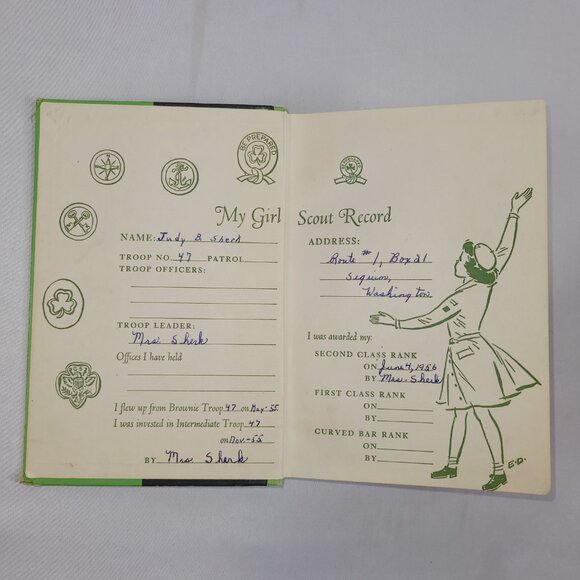 BE PREPARED
BE PREPARED
My Girl Scout Record
NAME: Judy B Sherk
TROOP NO. 47 PATROL
TROOP OFFICERS:
TROOP LEADER:
Mrs. Sherk
Offices I have held
I flew up from Brownie Troop 47 on May-55
I was invested in Intermediate Troop 47
on Nov-55
BY Mrs Sherk
ADDRESS:
Route #1, Box 21
Sequim,
Washington
I was awarded my:
SECOND CLASS RANK
ON June 4, 1956
BY Mrs. Sherk
FIRST CLASS RANK
ON
BY
CURVED BAR RANK
ON
BY
E.D.